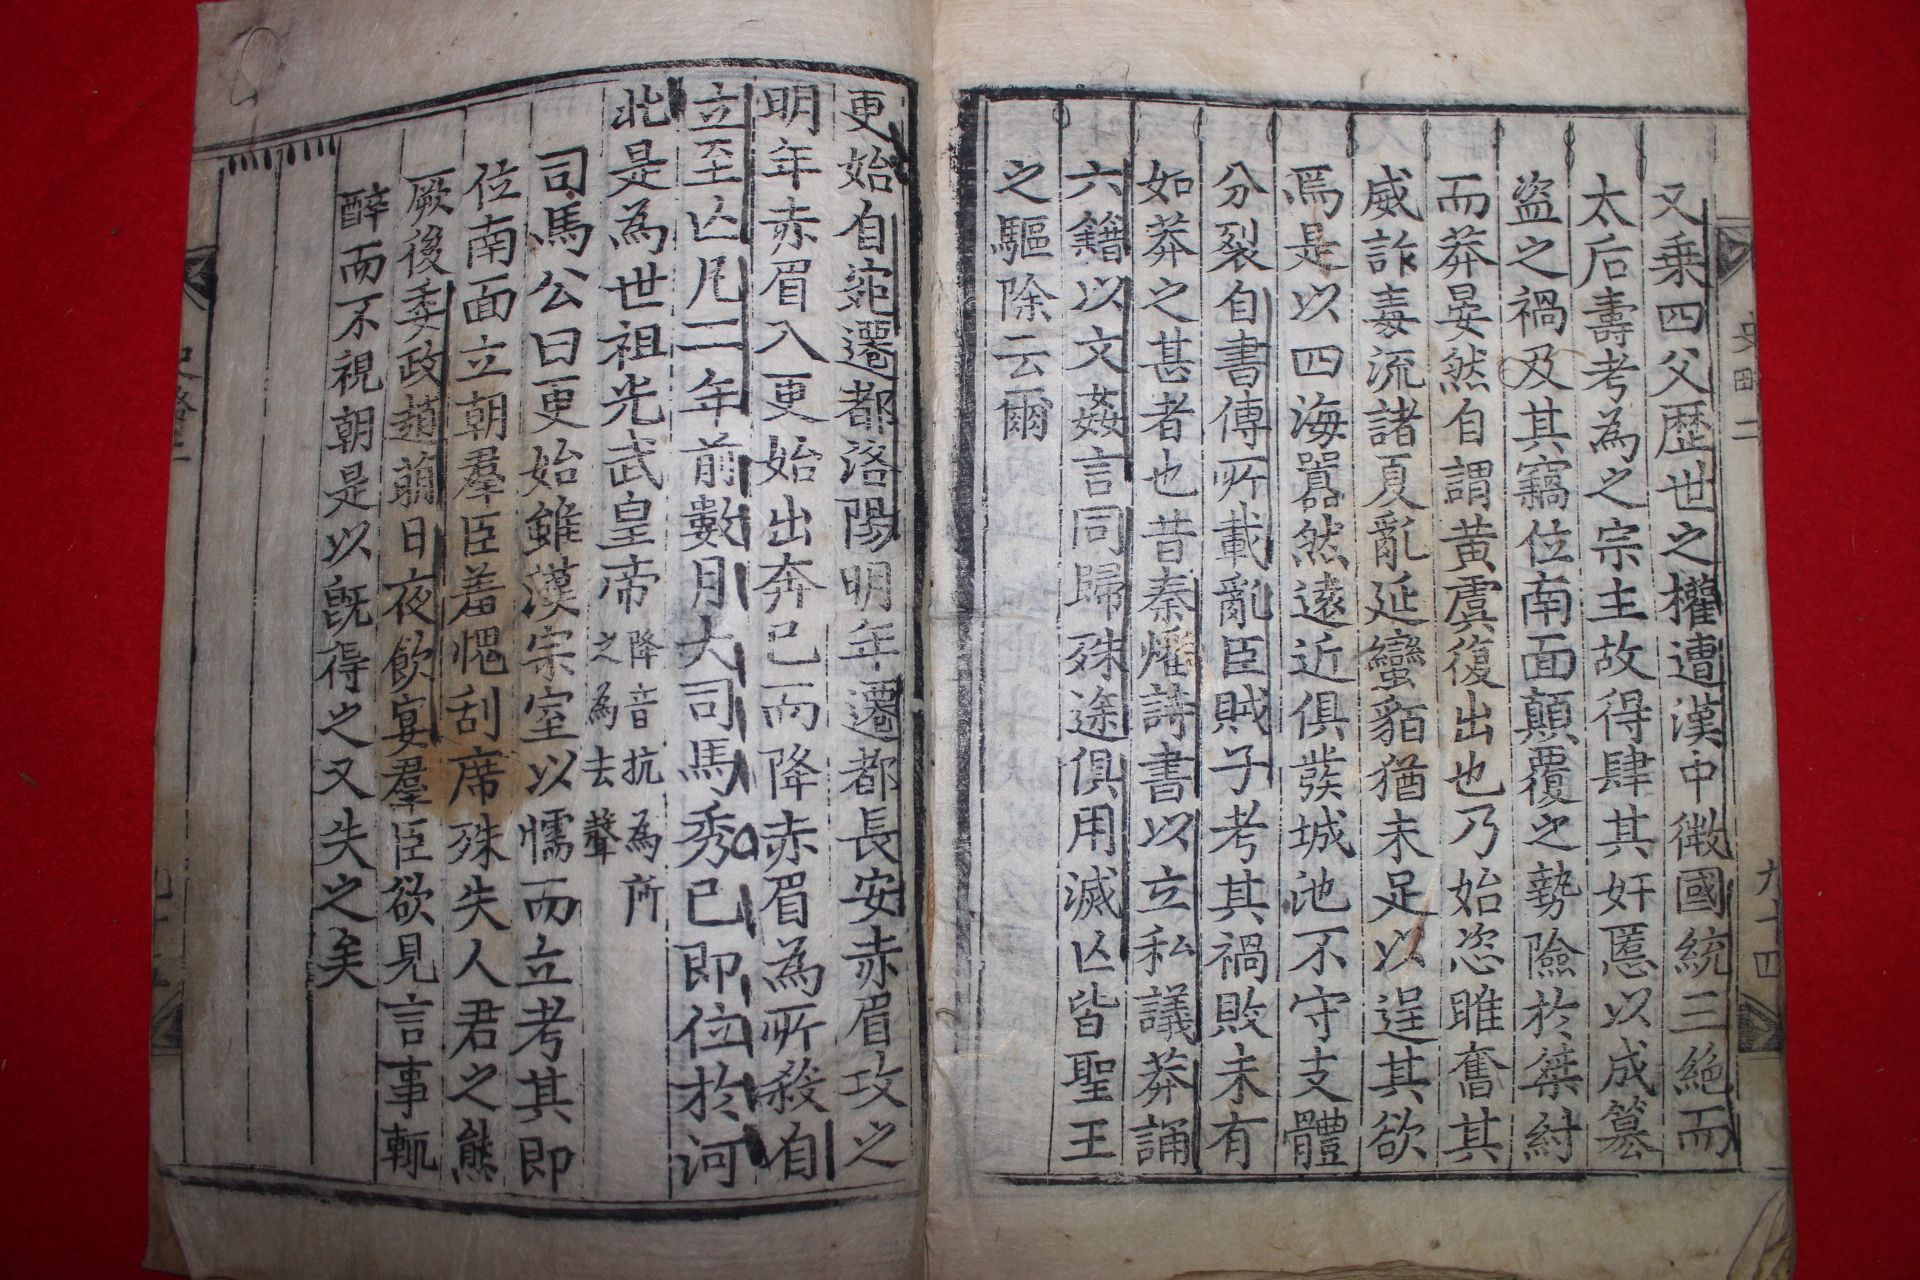 又乗四父歴世之權遭漢中微國統三絶而
太后壽考為之宗主故得肆其奸慝以成簒
盜之禍及其竊位南面顛覆之勢險於桀紂
而莽晏然自謂黄虞復出也乃始恣睢奮其
威詐毒流諸夏亂延蠻貊猶未足以逞其欲
焉是以四海嚣然遠近俱發城池不守支體
分裂自書傳所載亂臣賊子考其禍敗未有
如莽之甚者也昔秦燔詩書以立私議莽誦
六籍以文姦言同歸殊途俱用滅亡皆聖王
之驅除云爾
史略二
九十四
更始自宛遷都洛陽明年遷都長安赤眉攻之
明年赤眉入更始出奔已而降赤眉為所殺自
立至亡凡二年前數月大司馬秀已即位於河
北是為世祖光武皇帝
降音抗為所
之為去聲
司馬公曰更始雖漢宗室以懦而立考其即
位南面立朝羣臣羞愧刮席殊失人君之態
厥後委政趙萌日夜飲宴羣臣欲見言事輒
醉而不視朝是以旣得之又失之矣